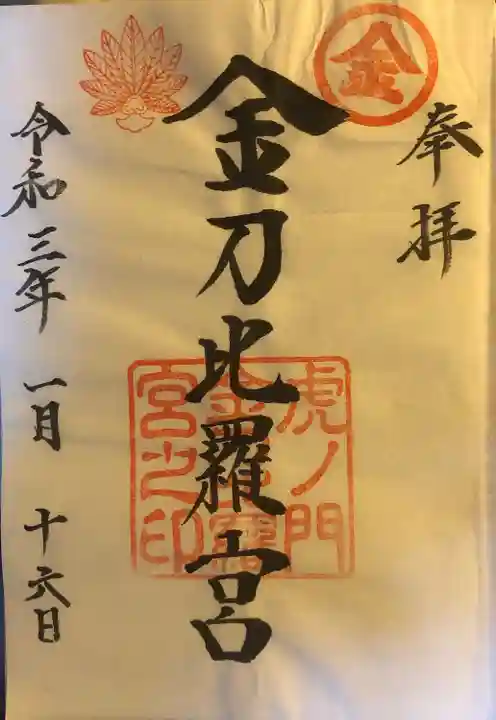 奉拝
金
金刀比羅宮
虎ノ門
金刀比羅
宮之印
令和三年 一月 十六日